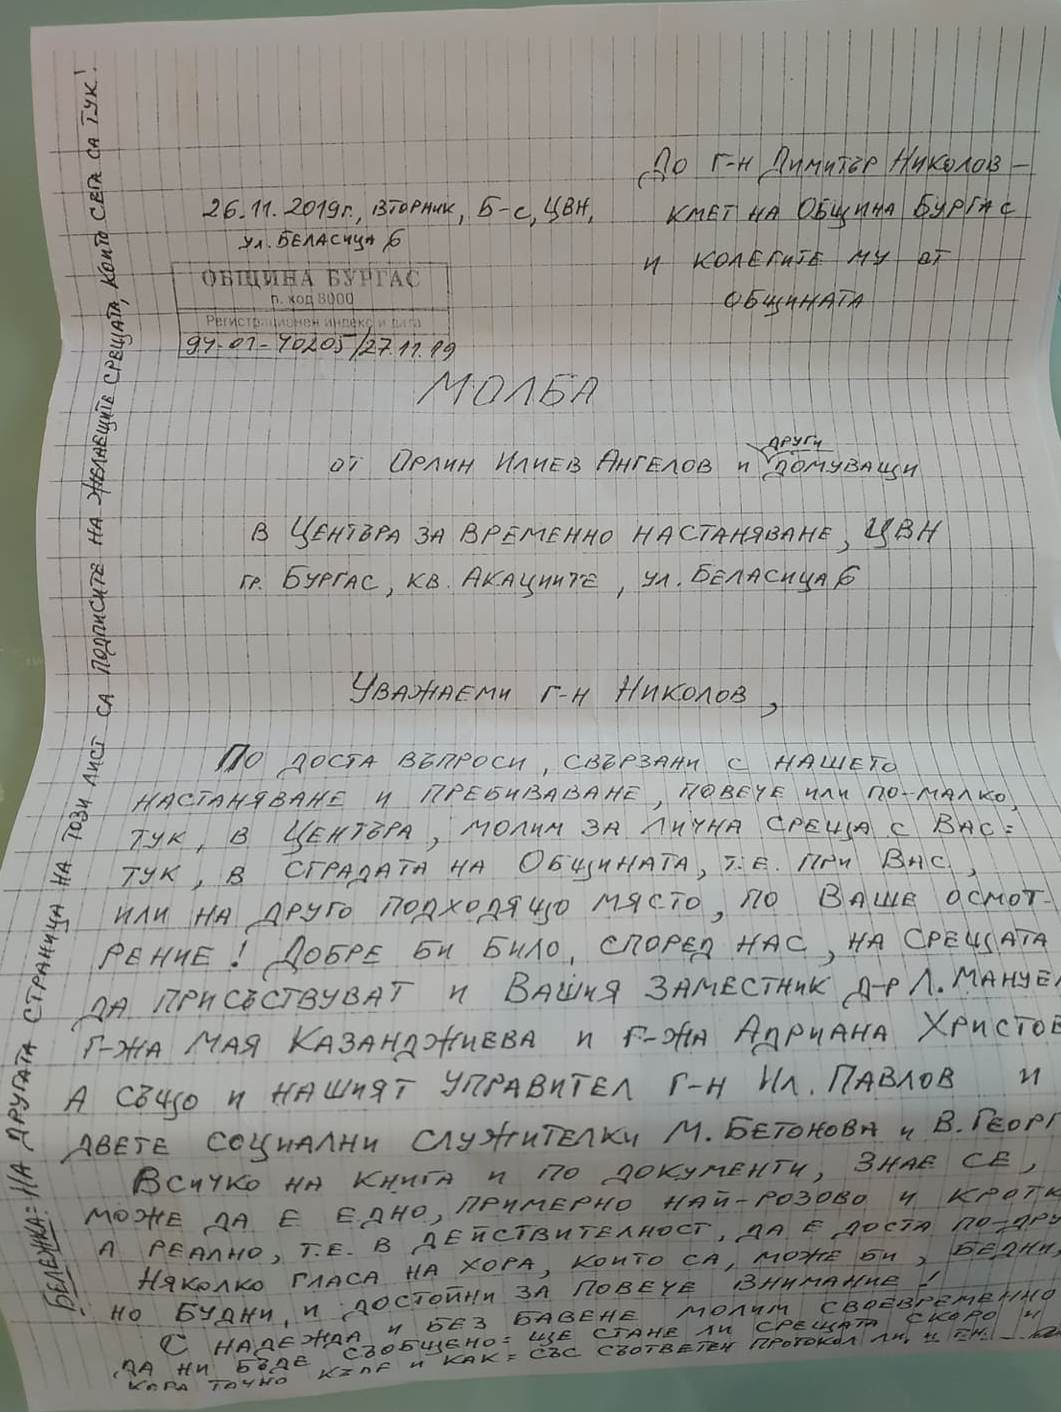 До г-н Димитър Николов –
кмет на Община Бургас
и колегите му от
Общината
26.11.2019г., вторник, Б-с, ЦВН,
ул. Беласица 6
ОБЩИНА БУРГАС
п. код 8000
Регистрационен индекс и дата
94-01-40205/27.11.19
МОЛБА
други
от Орлин Илиев Ангелов и домуващи
в Центъра за временно настаняване, ЦВН
гр. Бургас, кв. Акациите, ул. Беласица 6
Уважаеми г-н Николов,
По доста въпроси, свързани с нашето
настаняване и пребиваване, повече или по-малко,
тук, в Центъра, молим за лична среща с Вас:
тук, в сградата на Общината, т.е. при Вас,
или на друго подходящо място, по Ваше осмот-
рение! Добре би било, според нас, на срещата
да присъствуват и Вашия заместник д-р Л. Мануел
г-жа Мая Казанджиева и г-жа Адриана Христов
А също и нашият управител г-н Ил. Павлов и
двете социални служителки М. Бетонова и В. Георг
Всичко на книга и по документи, знае се,
може да е едно, примерно най-розово и кротк
а реално, т.е. в действителност, да е доста по-дру
Няколко гласа на хора, които са, може би, бедни,
но будни, и достойни за повече внимание!
С надежда и без бавене молим своевременно
да ни бъде съобщено: ще стане ли срещата скоро и
кога точно къде и как = със съответен протокол ли, и т.н.
Бележка: На другата страница на този лист са подписите на желаещите срещата, които сега са тук!